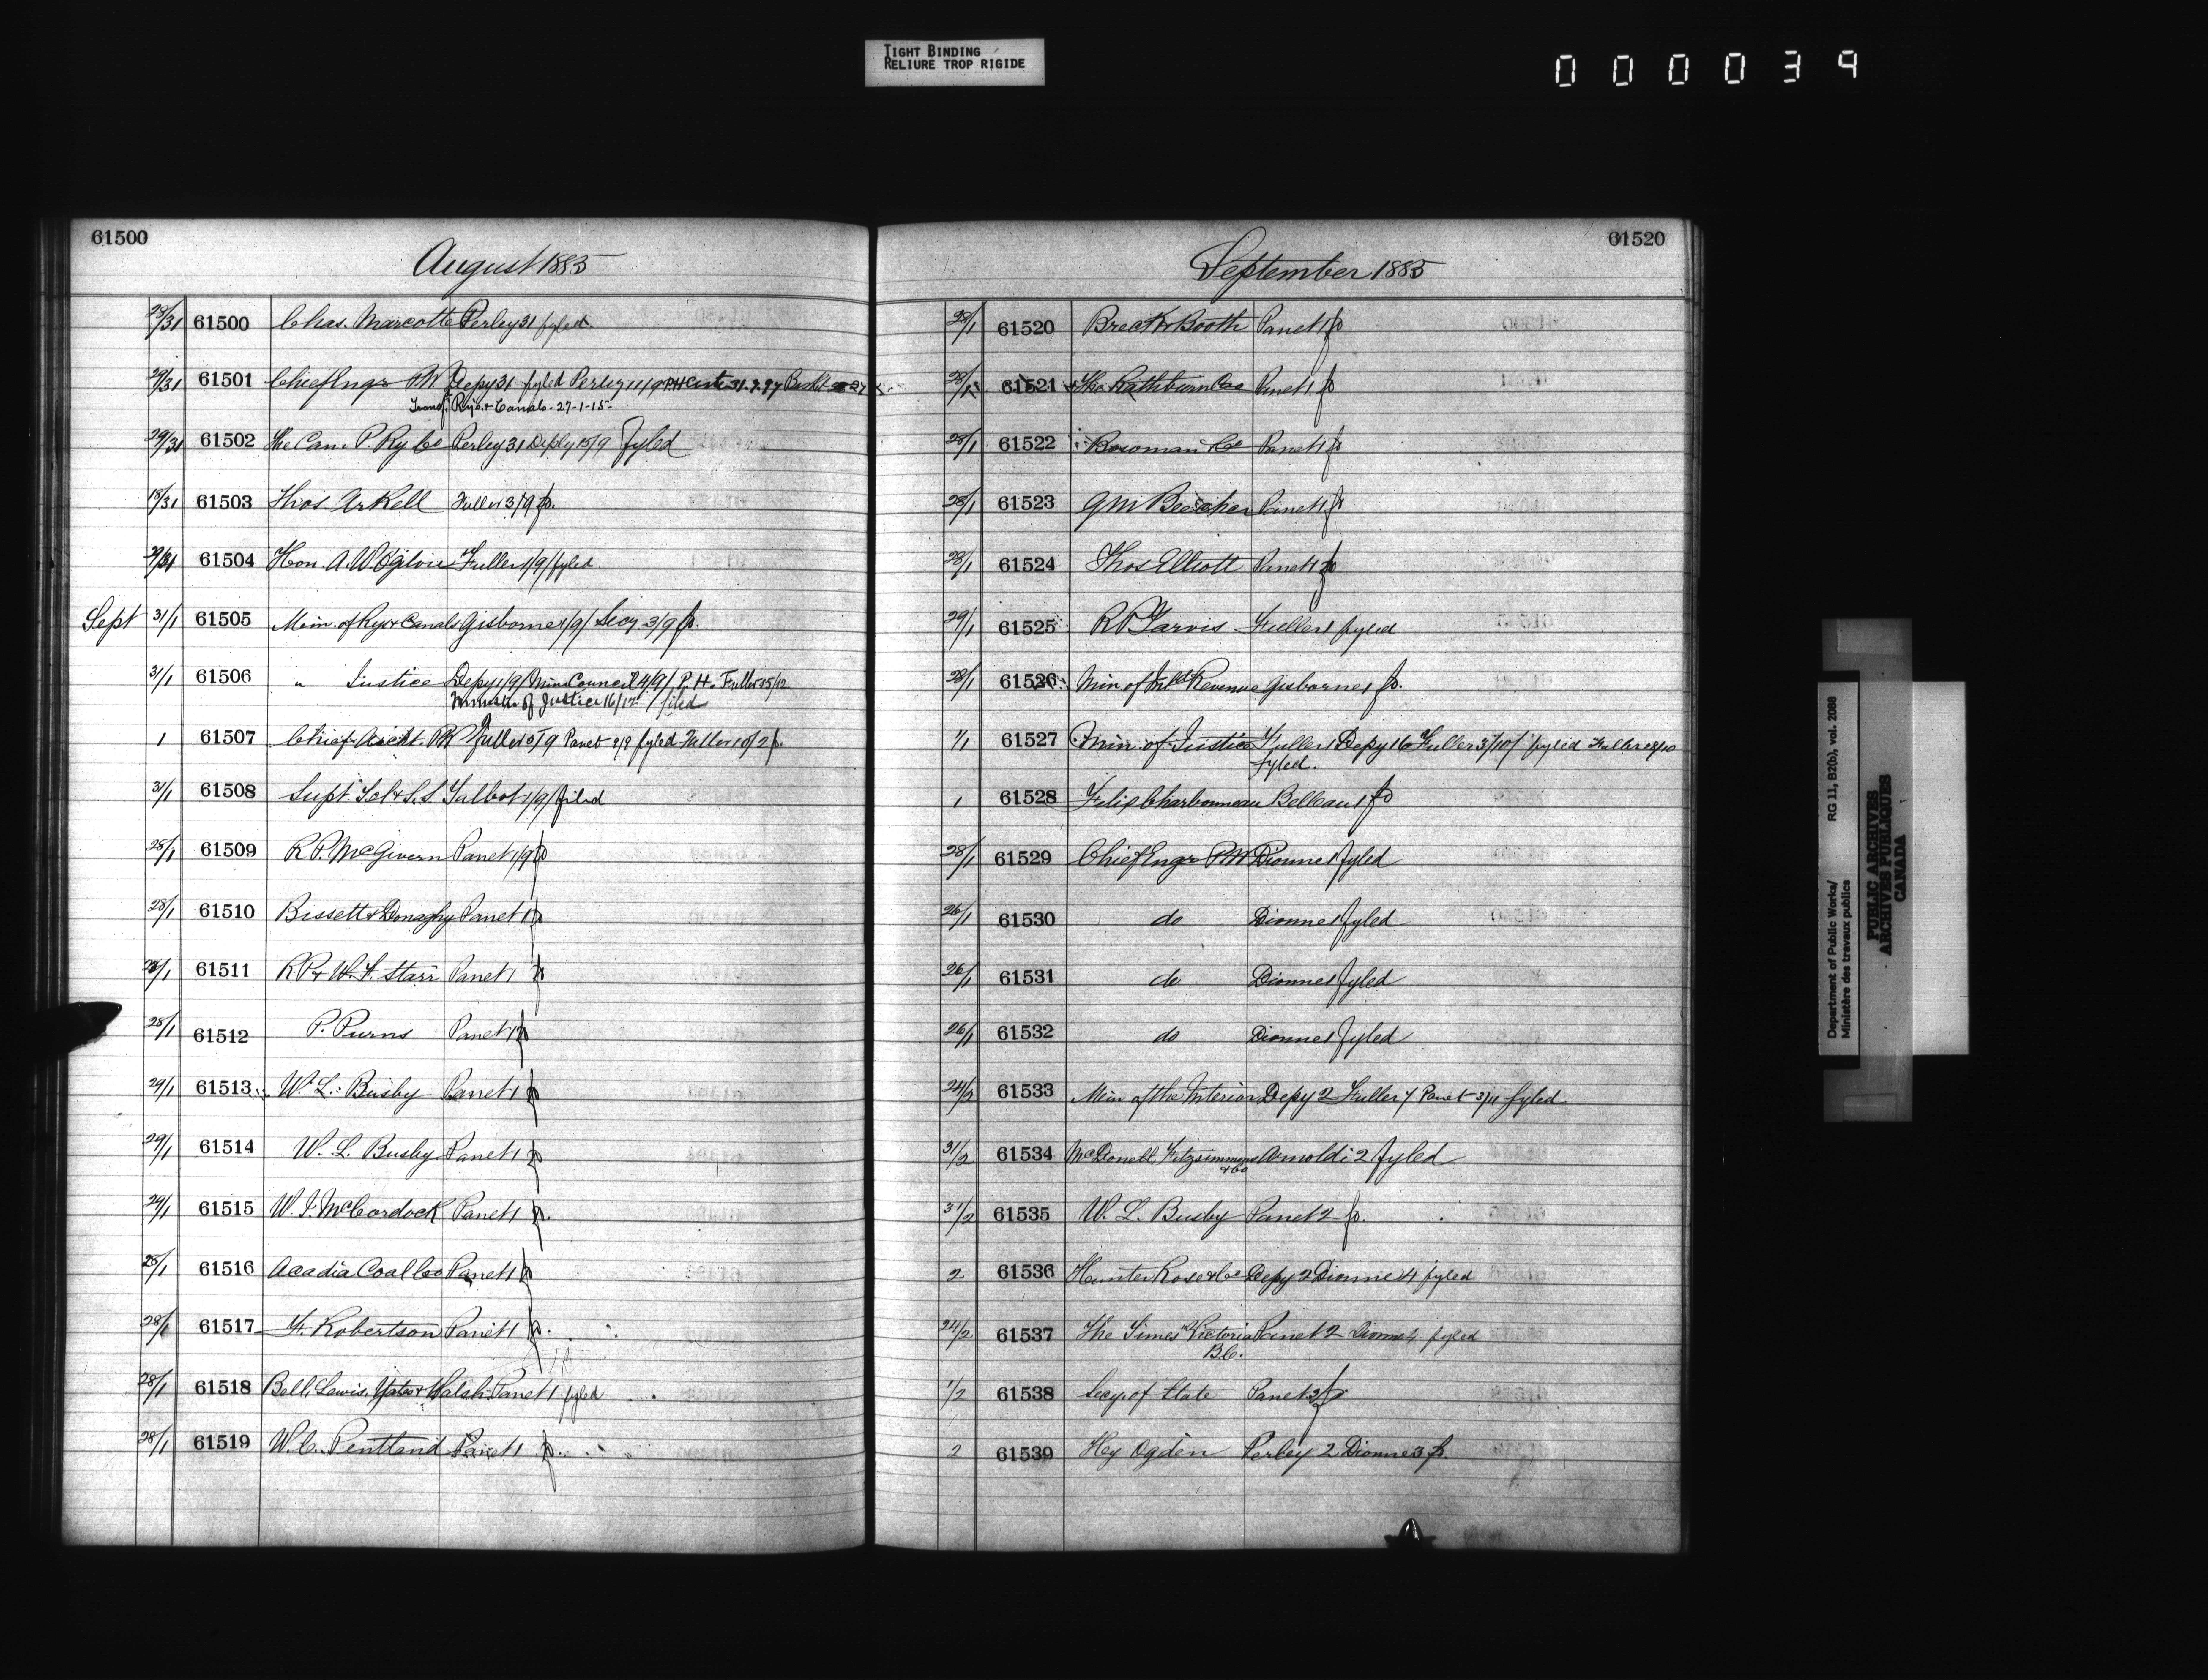 TIGHT BINDING
RELIURE TROP RIGIDE
000039
61500
August 1885
28/31 61500 Chas. Marcotte Perley 31 fyled.
29/31 61501 Chief Engr PW Depy 31 fyled Perley 11/9
Transf. Rys. & Canals. 27-1-15-
29/31 61502 The Can. P. Ry Co Perley 31 Depy 15/9 Fyled
18/31 61503 Thos. Arkell Fuller 3/9 fd.
29/31 61504 Hon. A. W. Ogilvie Fuller 1/9/ fyled
Sept 31/1 61505 Min. of Rys & Canals Gisborne 1/9/ Secy 3/9 fd.
31/1 61506 " Justice Depy 1/9/ Min Council 4/9/ P. H. Fuller 15/12
Minister of Justice 16/12 filed
1 61507 Chief Archt. PW Fuller 5/9 Panet 8/9 fyled Fuller 10/2 f.
31/1 61508 Supt Tel & S.S. Talbot 1/9/ filed
28/1 61509 R. P. McGivern Panet 1/9 fd
28/1 61510 Bissett & Donaghy Panet 1 fd
28/1 61511 R P & W. F. Starr Panet 1 fd
28/1 61512 P. Purns Panet 1 fd
29/1 61513 W. L. Busby Panet 1 fd
29/1 61514 W. L. Busby Panet 1 fd
29/1 61515 W. J. McCordock Panet 1 fd.
28/1 61516 Acadia Coal Co Panet 1 fd
28/1 61517 F. Robertson Panet 1 fd.
28/1 61518 Bell, Lewis, Yates & Walsh Panet 1 fyled
28/1 61519 W. C. Pentland Panet 1 fd.
61520
September 1885
28/1 61520 Breck & Booth Panet 1 fd
28/1 61521 The Rathburn Co Panet 1 fd
28/1 61522 Bowman & Co Panet 1 fd
28/1 61523 G M Beecher Panet 1 fd
28/1 61524 Thos Elliott Panet 1 fd
29/1 61525 R P Jarvis Fuller 1 fyled
28/1 61526 Min of Inld Revenue Gisborne 1 fd.
1/1 61527 Min. of Justice Fuller 1 Depy 16 Fuller 3/10/ fyled Fuller 28/10
fyled.
1 61528 Felix Charbonneau Belleau 1 fd
28/1 61529 Chief Engr PW Dionne 1 fyled
26/1 61530 do Dionne 1 fyled
26/1 61531 do Dionne 1 fyled
26/1 61532 do Dionne 1 fyled
24/2 61533 Min of the Interior Depy 2 Fuller 7 Panet 3/11 fyled
31/2 61534 McDonell Fitzsimmons Arnoldi 2 fyled
& Co
31/2 61535 W. L. Busby Panet 2 fd.
2 61536 Hunter Rose & Co Depy 2 Dionne 4 fyled
24/2 61537 The Times" Victoria Panet 2 Dionne 4 fyled
B.C.
1/2 61538 Secy of State Panet 2 fd
2 61539 Hy Ogden Perley 2 Dionne 3 fd.
Department of Public Works/
Ministère des travaux publics
RG 11, B2(b), vol. 2088
PUBLIC ARCHIVES
ARCHIVES PUBLIQUES
CANADA